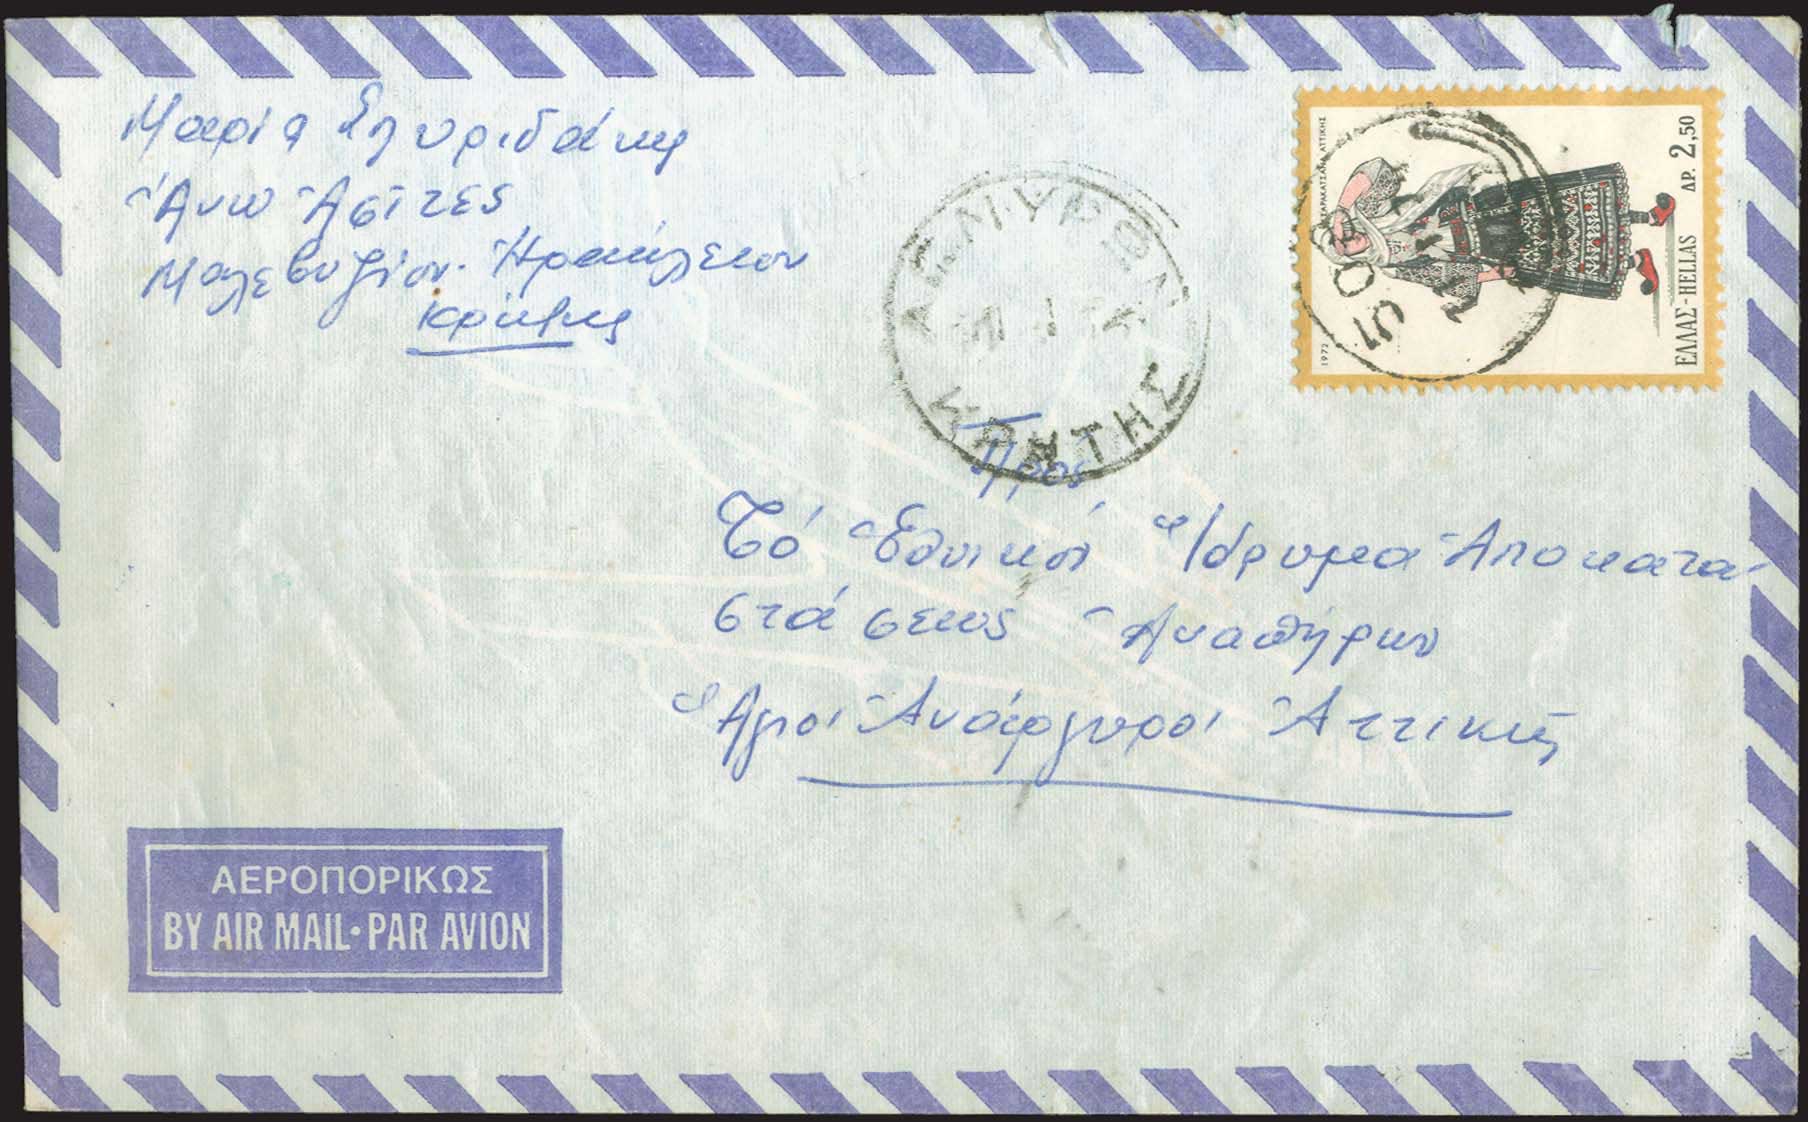 Μαρία Σπυριδάκη
Ἄνω Ἀσίτες
Μαλεβυζίου. Ἡρακλείου
Κρήτης
ΚΡΗΤΗΣ
ΣΑΡΑΚΑΤΣΑΝΑ ΑΤΤΙΚΗΣ
1972
ΕΛΛΑΣ-HELLAS ΔΡ. 2,50
508
Πρός
Τό Ἐθνικόν Ἵδρυμα Ἀποκατα-
στάσεως Ἀναπήρων
Ἅγιοι Ἀνάργυροι Ἀττικῆς
ΑΕΡΟΠΟΡΙΚΩΣ
BY AIR MAIL·PAR AVION